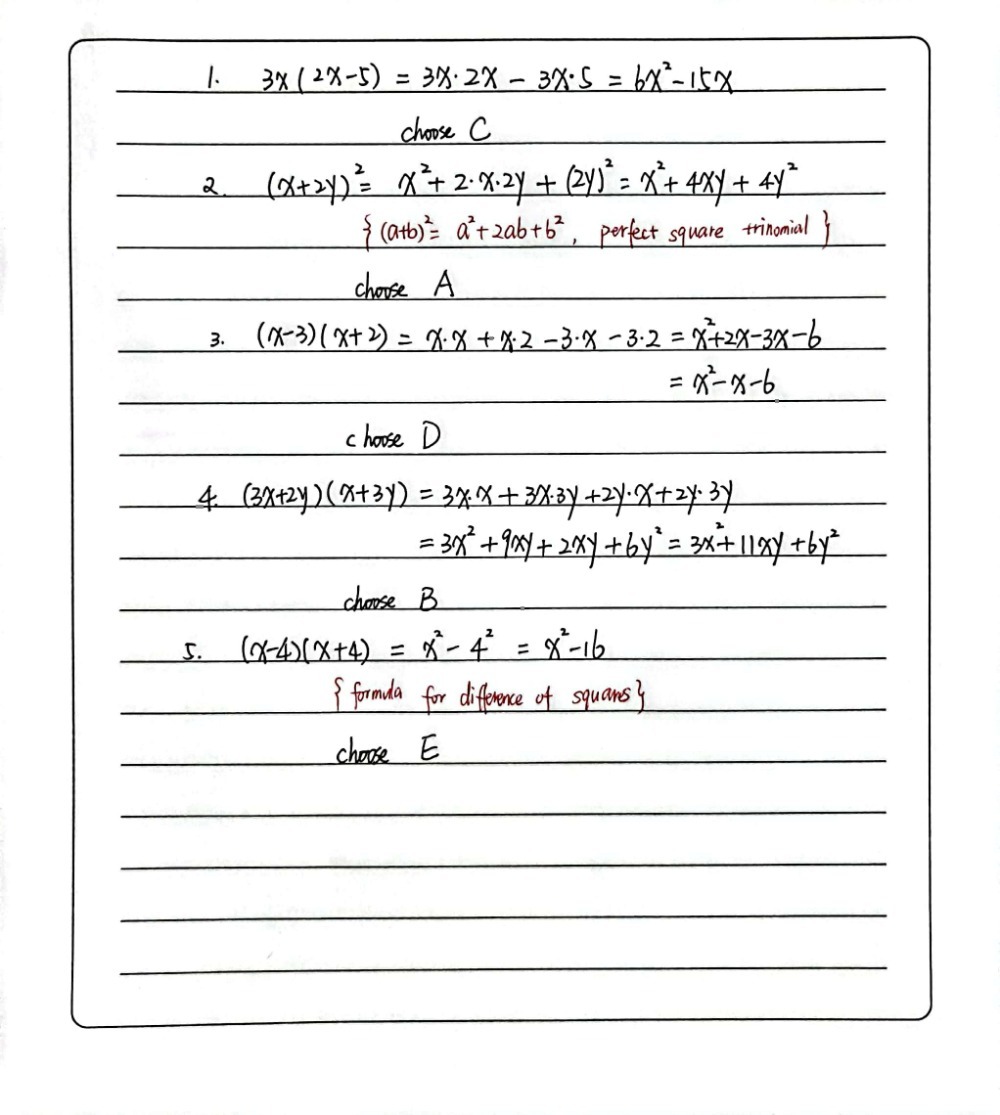 1. 3x(2x-5) = 3x·2x - 3x·5 = 6x²-15x
choose C
2. (x+2y)² = x²+2·x·2y+(2y)² = x²+4xy+4y²
{(a+b)²= a²+2ab+b², perfect square trinomial}
choose A
3. (x-3)(x+2) = x·x+x·2-3·x-3·2 = x²+2x-3x-6
= x²-x-6
choose D
4. (3x+2y)(x+3y) = 3x·x+3x·3y+2y·x+2y·3y
= 3x²+9xy+2xy+6y² = 3x²+11xy+6y²
choose B
5. (x-4)(x+4) = x²-4² = x²-16
{formula for difference of squares}
choose E